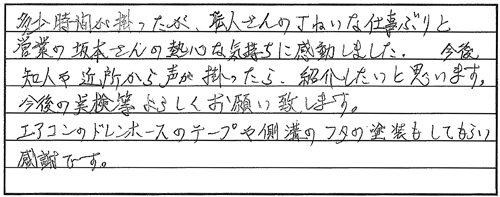 多少時間が掛ったが、職人さんの丁ねいな仕事ぶりと
営業の坂本さんの熱心な気持ちに感動しました。 今後、
知人や近所から声が掛ったら、紹介したいと思います。
今後の点検等よろしくお願い致します。
エアコンのドレンホースのテープや側溝のフタの塗装もしてもらい
感謝です。